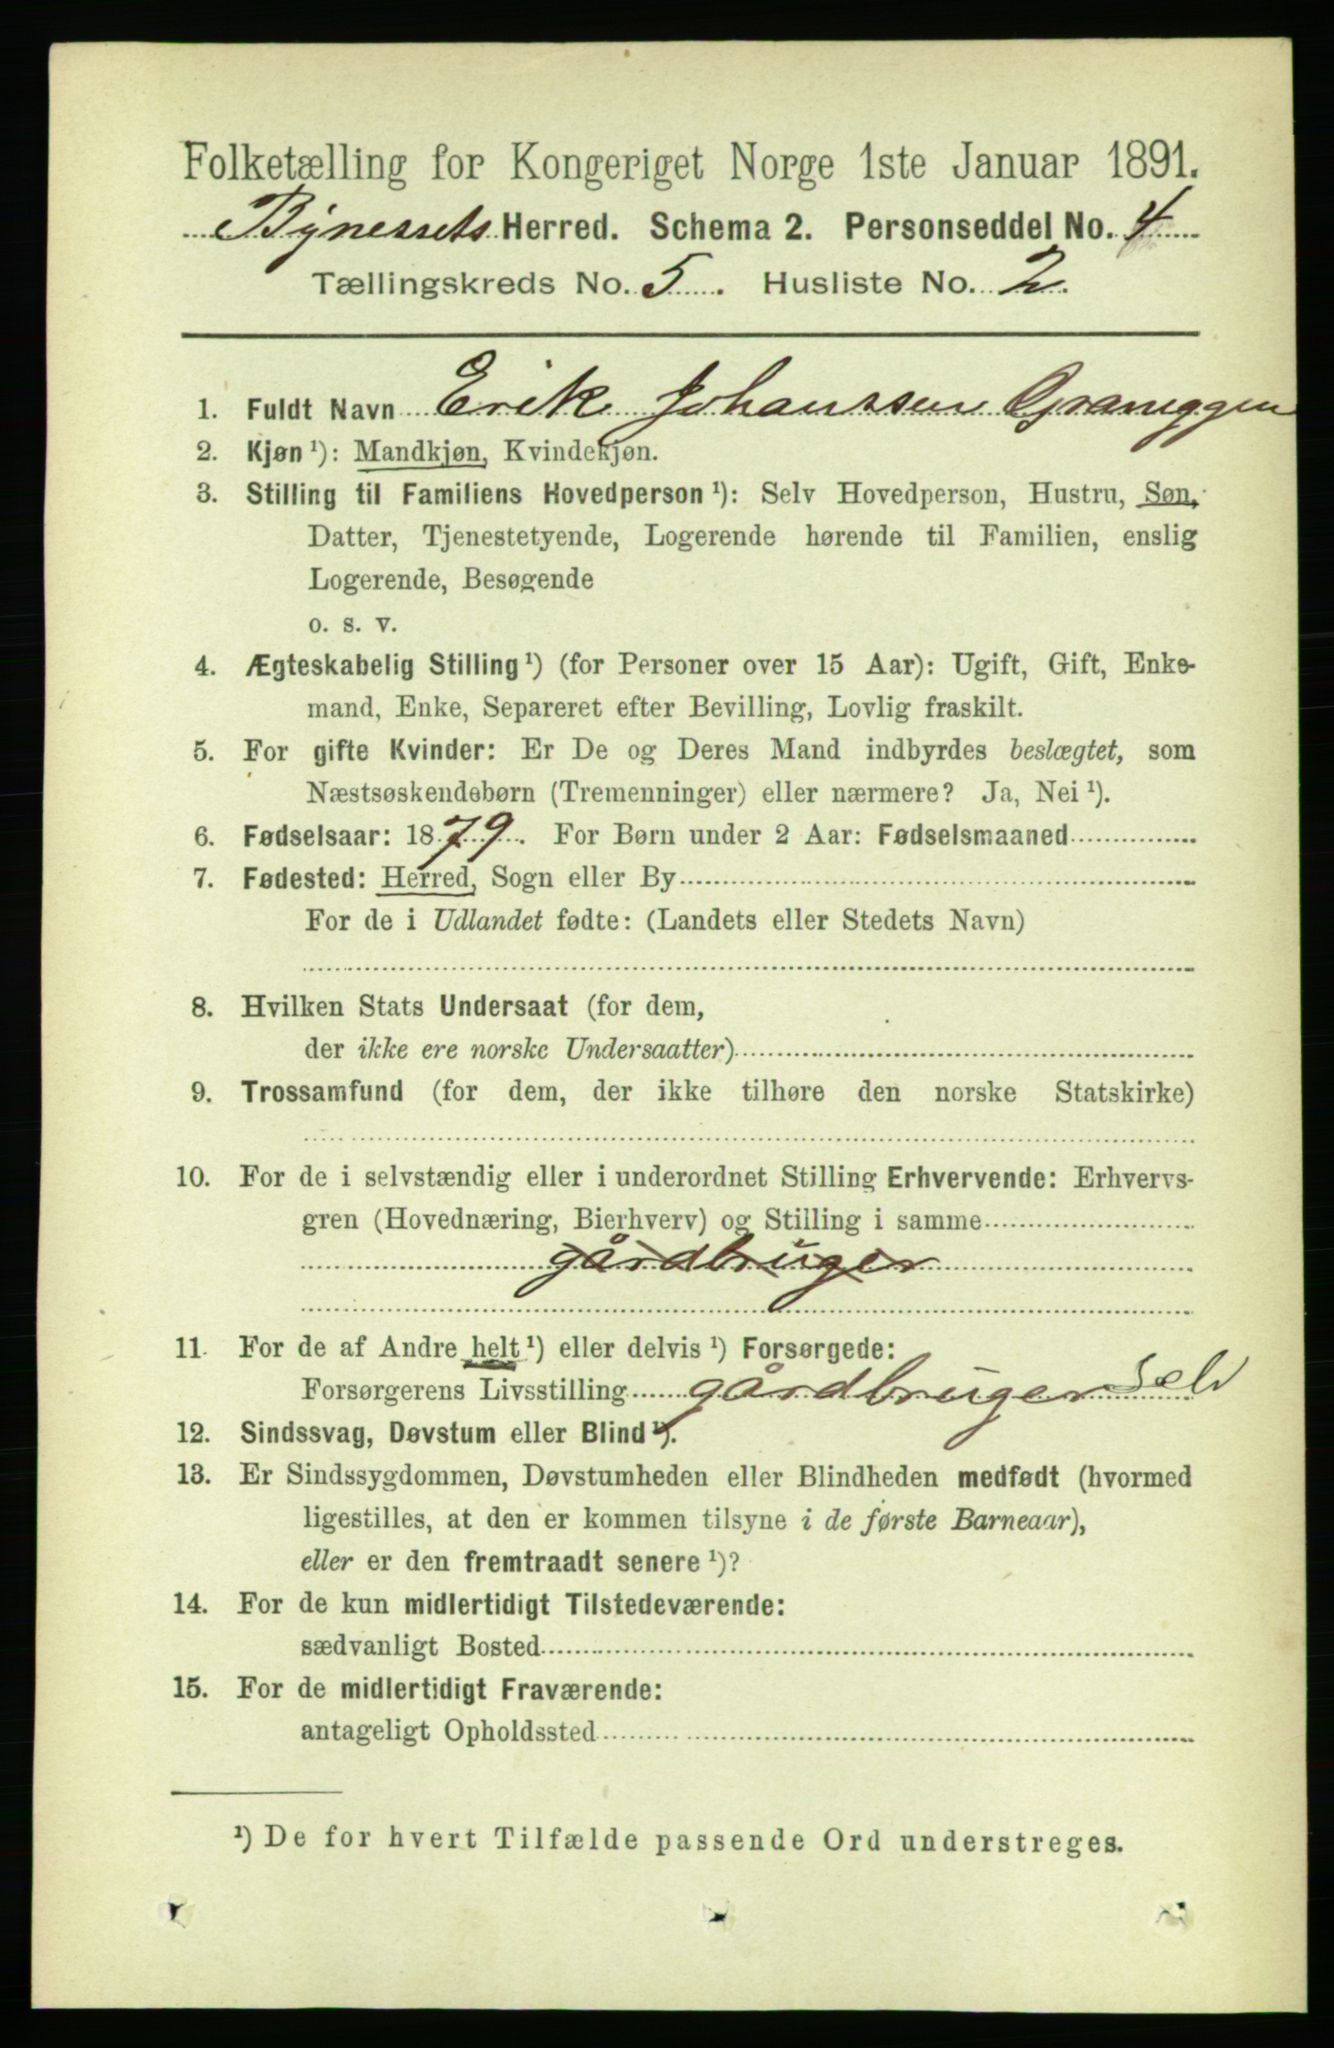 Folketælling for Kongeriget Norge 1ste Januar 1891.
Bynessets Herred. Schema 2. Personseddel No. 4
Tællingskreds No. 5. Husliste No. 2.
1. Fuldt Navn Erik Johanssen Graneggen
2. Kjøn ¹): Mandkjøn, Kvindekjøn.
3. Stilling til Familiens Hovedperson ¹): Selv Hovedperson, Hustru, Søn,
Datter, Tjenestetyende, Logerende hørende til Familien, enslig
Logerende, Besøgende
o. s. v.
4. Ægteskabelig Stilling ¹) (for Personer over 15 Aar): Ugift, Gift, Enke-
mand, Enke, Separeret efter Bevilling, Lovlig fraskilt.
5. For gifte Kvinder: Er De og Deres Mand indbyrdes beslægtet, som
Næstsøskendebørn (Tremenninger) eller nærmere? Ja, Nei ¹).
6. Fødselsaar: 1879. For Børn under 2 Aar: Fødselsmaaned
7. Fødested: Herred, Sogn eller By
For de i Udlandet fødte: (Landets eller Stedets Navn)
8. Hvilken Stats Undersaat (for dem,
der ikke ere norske Undersaatter)
9. Trossamfund (for dem, der ikke tilhøre den norske Statskirke)
10. For de i selvstændig eller i underordnet Stilling Erhvervende: Erhvervs-
gren (Hovednæring, Bierhverv) og Stilling i samme
gårdbruger
11. For de af Andre helt ¹) eller delvis ¹) Forsørgede:
Forsørgerens Livsstilling gårdbruger Selv
12. Sindssvag, Døvstum eller Blind ¹).
13. Er Sindssygdommen, Døvstumheden eller Blindheden medfødt (hvormed
ligestilles, at den er kommen tilsyne i de første Barneaar),
eller er den fremtraadt senere ¹)?
14. For de kun midlertidigt Tilstedeværende:
sædvanligt Bosted
15. For de midlertidigt Fraværende:
antageligt Opholdssted
¹) De for hvert Tilfælde passende Ord understreges.